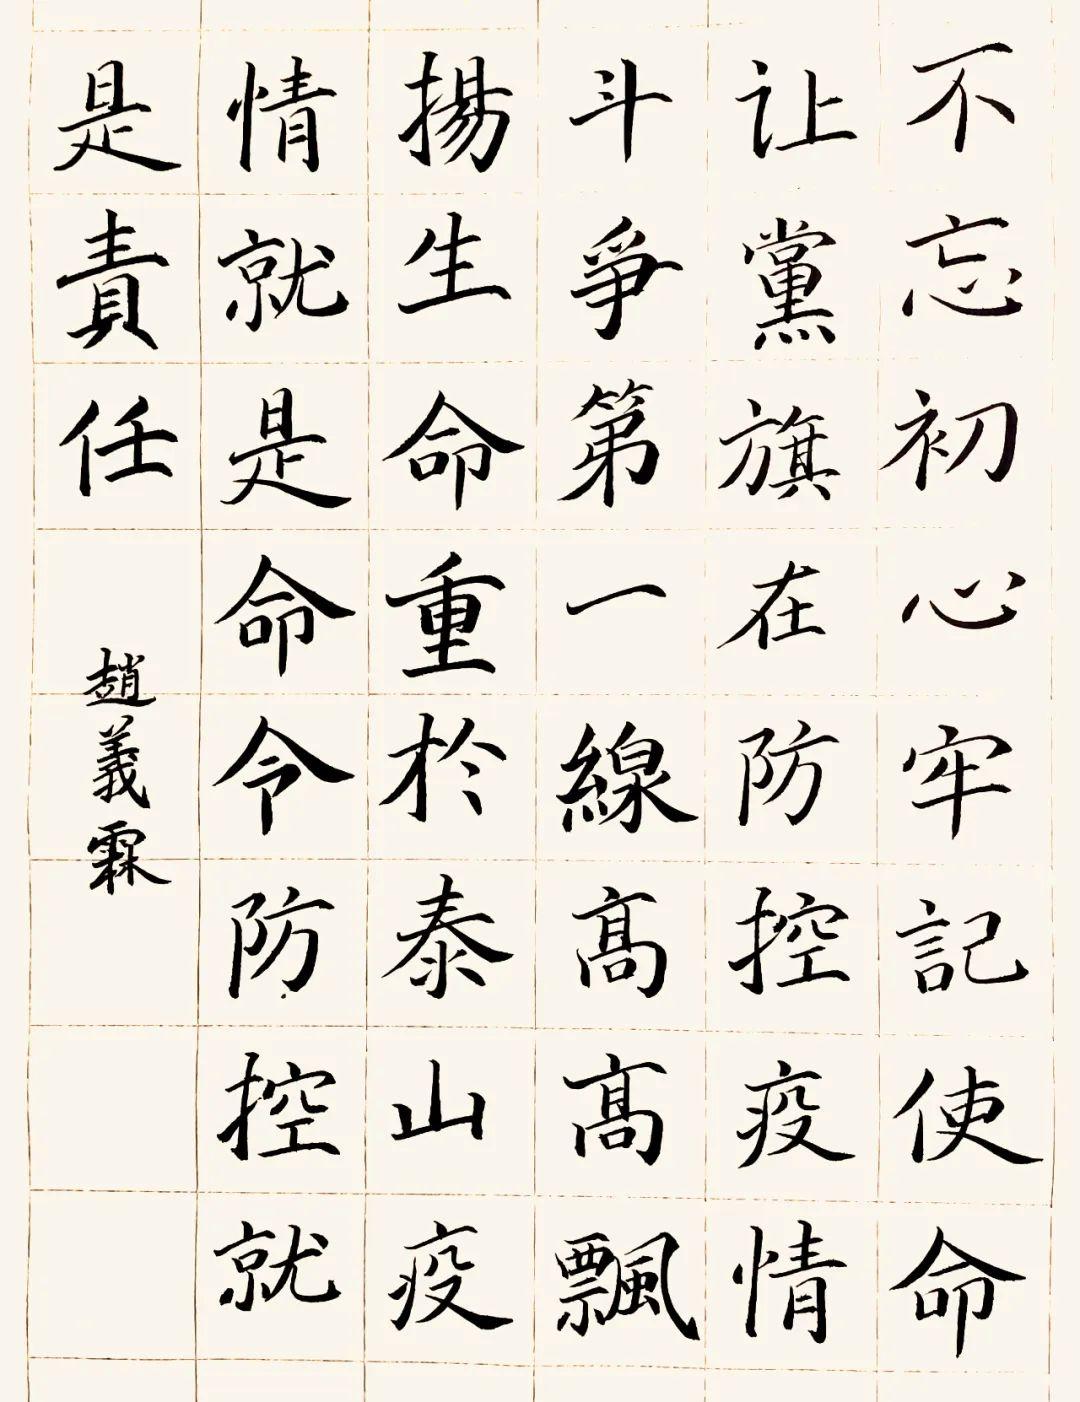 不忘初心牢記使命
让黨旗在防控疫情
斗爭第一線髙髙飄
揚生命重於泰山疫
情就是命令防控就
是責任
趙義霖